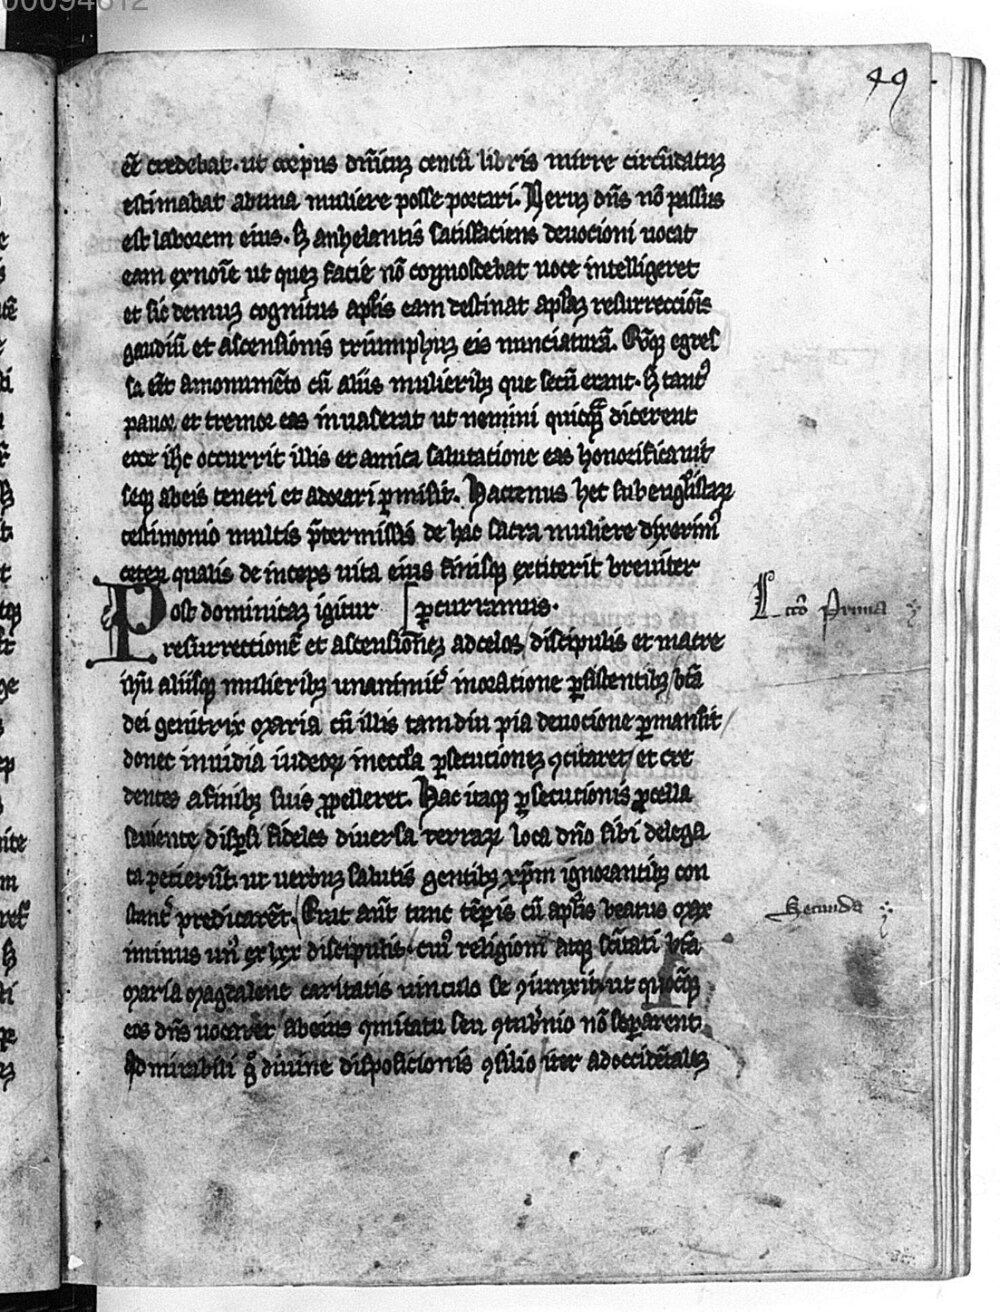 00094612
49
eē credebat. ut corpus dn̄icuꝫ centū libris mirre circūdatuꝫ
estimabat abuna muliere posse portari. Veruꝫ dn̄s nō passus
est laborem eius. sꝫ anhelantis satisfaciens deuocioni uocat
eam ex noīe ut queꝫ facie nō cognoscebat uoce intelligeret
et sic demuꝫ cognitus apl̄is eam destinat apl̄aꝫ resurreccōis
gaudiū et ascensionis triumphuꝫ eis nunciaturā. egres
sa amonumēto cū aliis mulieribꝫ que secū erant. sꝫ tantꝰ
pauor et tremor eas inuaserat ut nemini quicq̄ꝫ dicerent
ecce ih̄c occurrit illis et amica salutatione eas honorificauit
seqꝫ abeis teneri et adorari ꝑmisit. Hactenus hec sub eugl̄istaꝝ
testimonio multis p̄termissis de hac sacra muliere dixerimꝰ
ceteꝝ qualis deinceps uita eius finisqꝫ extiterit breuiter
Post dominicaꝫ igitur [ꝑcurramus.
Lctō Prima
resurrectionē et ascensionēꝫ adcelos / discipulis et matre
ih̄u aliisqꝫ mulieribꝫ unanimitꝰ inoratione ꝑsistentibꝫ / btā
dei genitrix maria cū illis tamdiu pia deuocione ꝑmansit /
donec inuidia iudeoꝝ ineccl̄a ꝑsecutioneꝫ ꝯcitaret / et cre
dentes afinibꝫ suis ꝓpelleret. Hac itaqꝫ ꝑsecutionis ꝓcella
seuiente disꝑsi fideles diuersa terraꝝ loca dn̄o sibi delega
ta petierūt. ut uerbuꝫ salutis gentibꝫ xp̄m ignorantibꝫ con
stantꝰ predicarēt. / Erat aūt tunc tēꝑis cū apl̄is beatus max
Secunda
iminus unꝰ ex lxx discipulis. cuiꝰ religioni atqꝫ sc̄itati bt̄a
maria magdalene caritatis uinculo se ꝯiunxit. ut quocūqꝫ
eos dn̄s uocaret / abeius ꝯmitatu seu ꝯtub̄nio nō seꝑarent.
Admirabili g̊ diuine disposicionis ꝯsilio iter adoccidētales